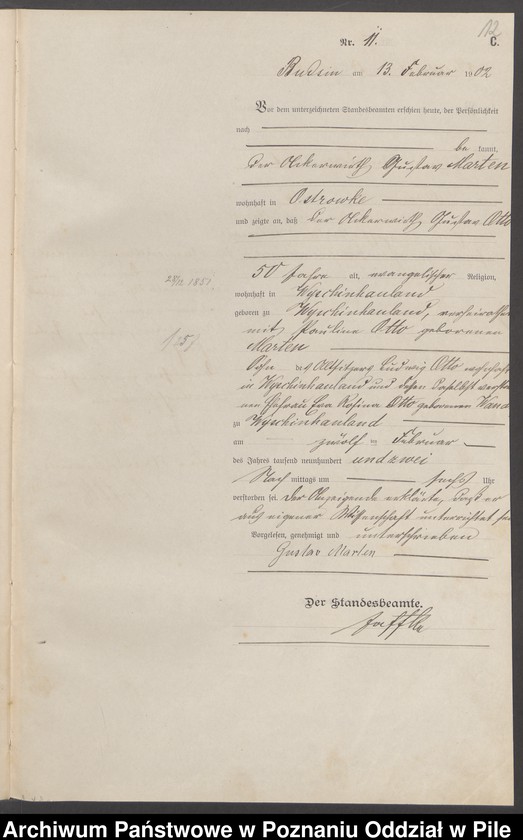 12
Nr. 11.
C.
Budsin am 13. Februar 1902
Vor dem unterzeichneten Standesbeamten erschien heute, der Persönlichkeit
nach
be kannt,
der Ackerwirth Gustav Marten
wohnhaft in Ostrowke
und zeigte an, daß der Ackerwirth Gustav Otto
50 Jahre alt, evangelischer Religion,
wohnhaft in Wyschinhauland
geboren zu Wyschinhauland, verheirathet
mit Pauline Otto geborenen
Marten
Sohn des Altsitzers Ludwig Otto wohnhaft
in Wyschinhauland und dessen daselbst verstor
nen Ehefrau Rosina Otto geborenen
zu Wyschinhauland
am zwölf ten Februar
des Jahres tausend neunhundert und zwei
Nach mittags um sechs Uhr
verstorben sei. Der Anzeigende erklärte, daß er
aus eigener Wissenschaft unterrichtet sei
Vorgelesen, genehmigt und unterschrieben
Gustav Marten
Der Standesbeamte.
Jaffke
1851
Archiwum Państwowe w Poznaniu Oddział w Pile